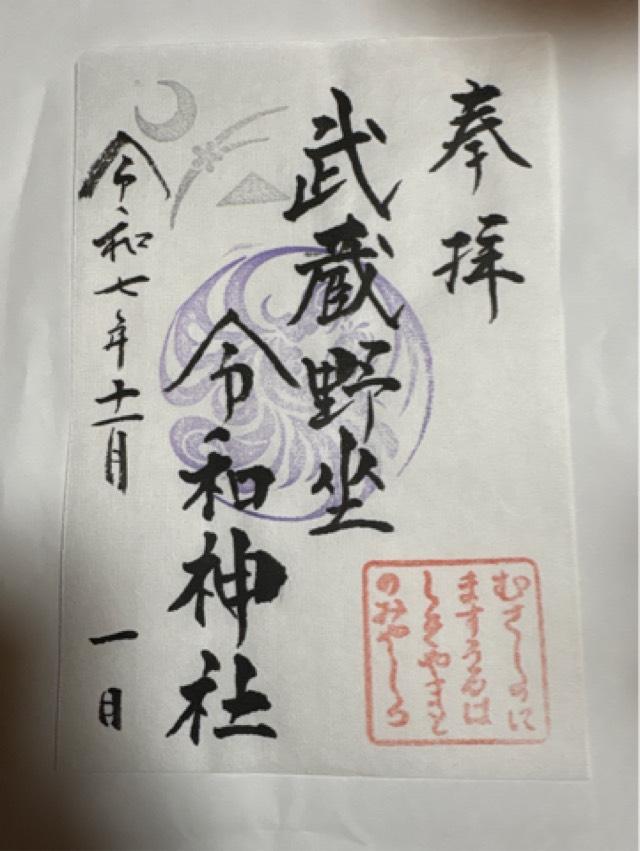 奉拝
武蔵野坐
令和神社
令和七年十一月
一日
むさしのに
ますうるは
しきやまと
のみやしろ